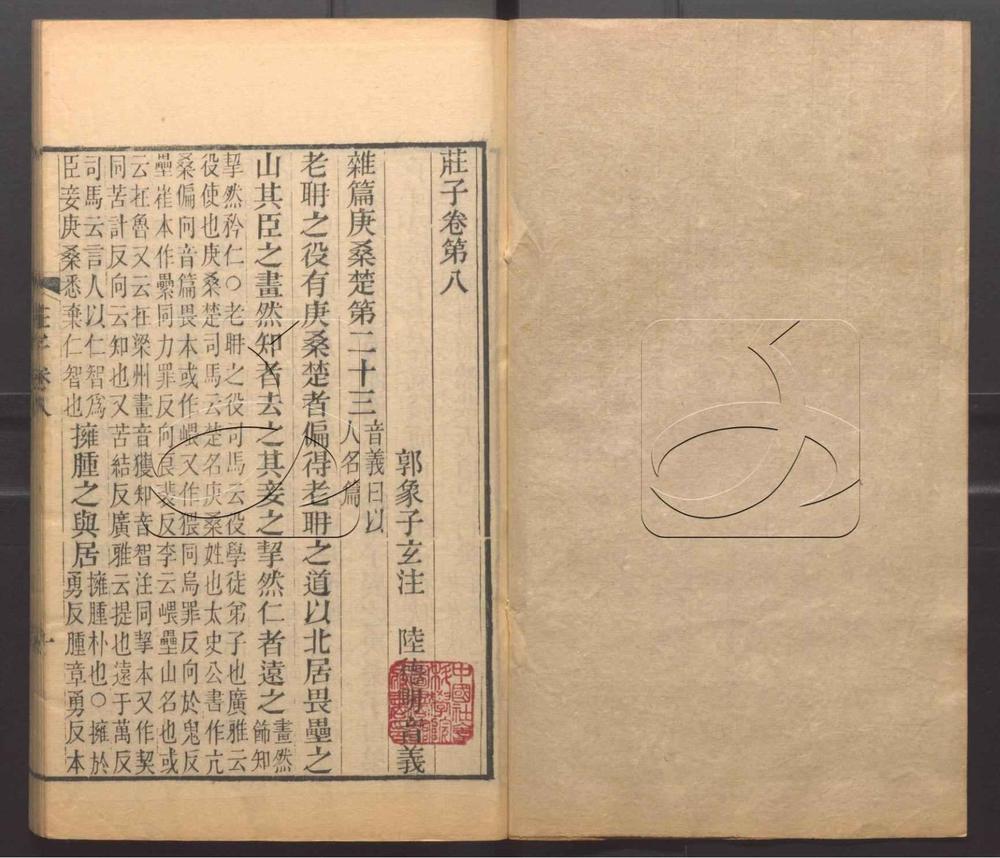 莊子卷第八
郭象子玄注 陸德明音義
雜篇庚桑楚第二十三音義曰以人名篇
老聃之役有庚桑楚者偏得老聃之道以北居畏壘之
山其臣之畫然知者去之其妾之挈然仁者遠之畫然飾知
挈然矜仁○老聃之役司馬云役學徒弟子也廣雅云
役使也庚桑楚司馬云楚名庚桑姓也太史公書作亢
桑偏向音篇畏本或作㟪又作猥同烏罪反向於鬼反
壘崔本作纍同力罪反向良裴反李云㟪壘山名也或
云在魯又云在梁州畫音獲知音智注同挈本又作契
同苦計反向云知也又苦結反廣雅云提也遠于萬反
司馬云言人以仁智爲
臣妾庚桑悉棄仁智也擁腫之與居擁腫朴也○擁於
勇反腫章勇反本
莊子 卷八